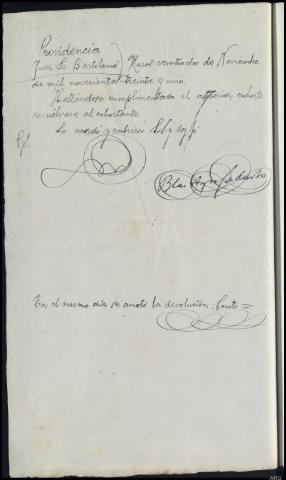 Providencia
Juez Sr. Bartolomé) Muros veintiocho de Noviembre
de mil novecientos treinta y uno.
Hallándose cumplimentado el anterior exhorto
devuélvase al exhortante.
Lo acordó y rubrica S.Sª doy fé
Blas
En el mismo día se anotó la devolución:
ARG